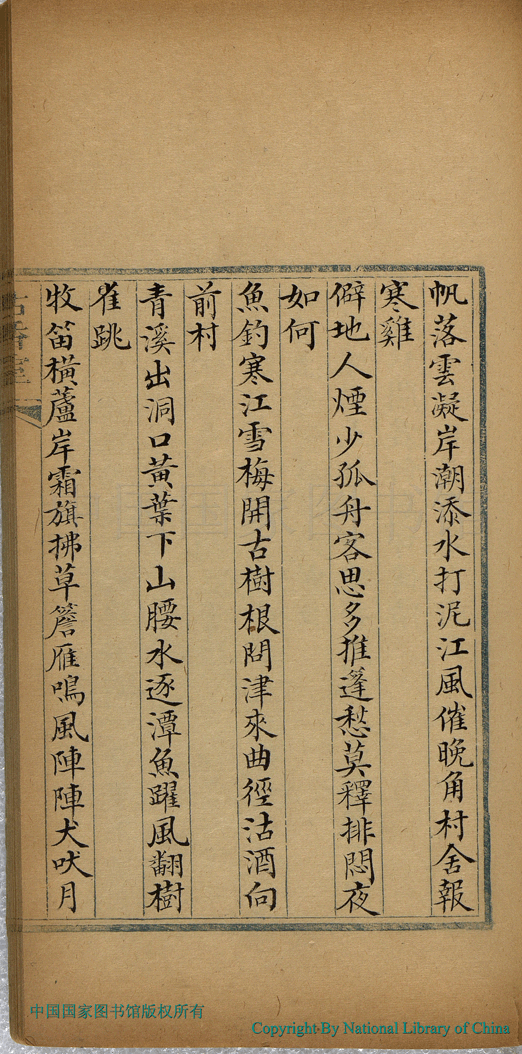 帆落雲凝岸潮添水打泥江風催晚角村舍報
寒雞
僻地人煙少孤舟客思多推篷愁莫釋排悶夜
如何
魚釣寒江雪梅開古樹根問津來曲徑沽酒向
前村
青溪出洞口黃葉下山腰水逐潭魚躍風翻樹
雀跳
牧笛橫蘆岸霜旗拂草簷雁鳴風陣陣犬吠月
中国国家图书馆版权所有
Copyright·By National Library of China